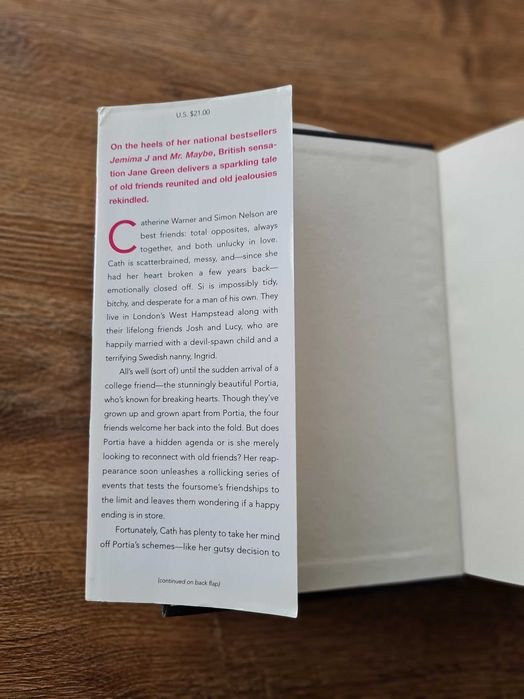 U.S. $21.00
On the heels of her national bestsellers
Jemima J and Mr. Maybe, British sensa-
tion Jane Green delivers a sparkling tale
of old friends reunited and old jealousies
rekindled.
Catherine Warner and Simon Nelson are
best friends: total opposites, always
together, and both unlucky in love.
Cath is scatterbrained, messy, and—since she
had her heart broken a few years back—
emotionally closed off. Si is impossibly tidy,
bitchy, and desperate for a man of his own. They
live in London's West Hampstead along with
their lifelong friends Josh and Lucy, who are
happily married with a devil-spawn child and a
terrifying Swedish nanny, Ingrid.
All's well (sort of) until the sudden arrival of a
college friend—the stunningly beautiful Portia,
who's known for breaking hearts. Though they've
grown up and grown apart from Portia, the four
friends welcome her back into the fold. But does
Portia have a hidden agenda or is she merely
looking to reconnect with old friends? Her reap-
pearance soon unleashes a rollicking series of
events that tests the foursome's friendships to
the limit and leaves them wondering if a happy
ending is in store.
Fortunately, Cath has plenty to take her mind
off Portia's schemes—like her gutsy decision to
(continued on back flap)